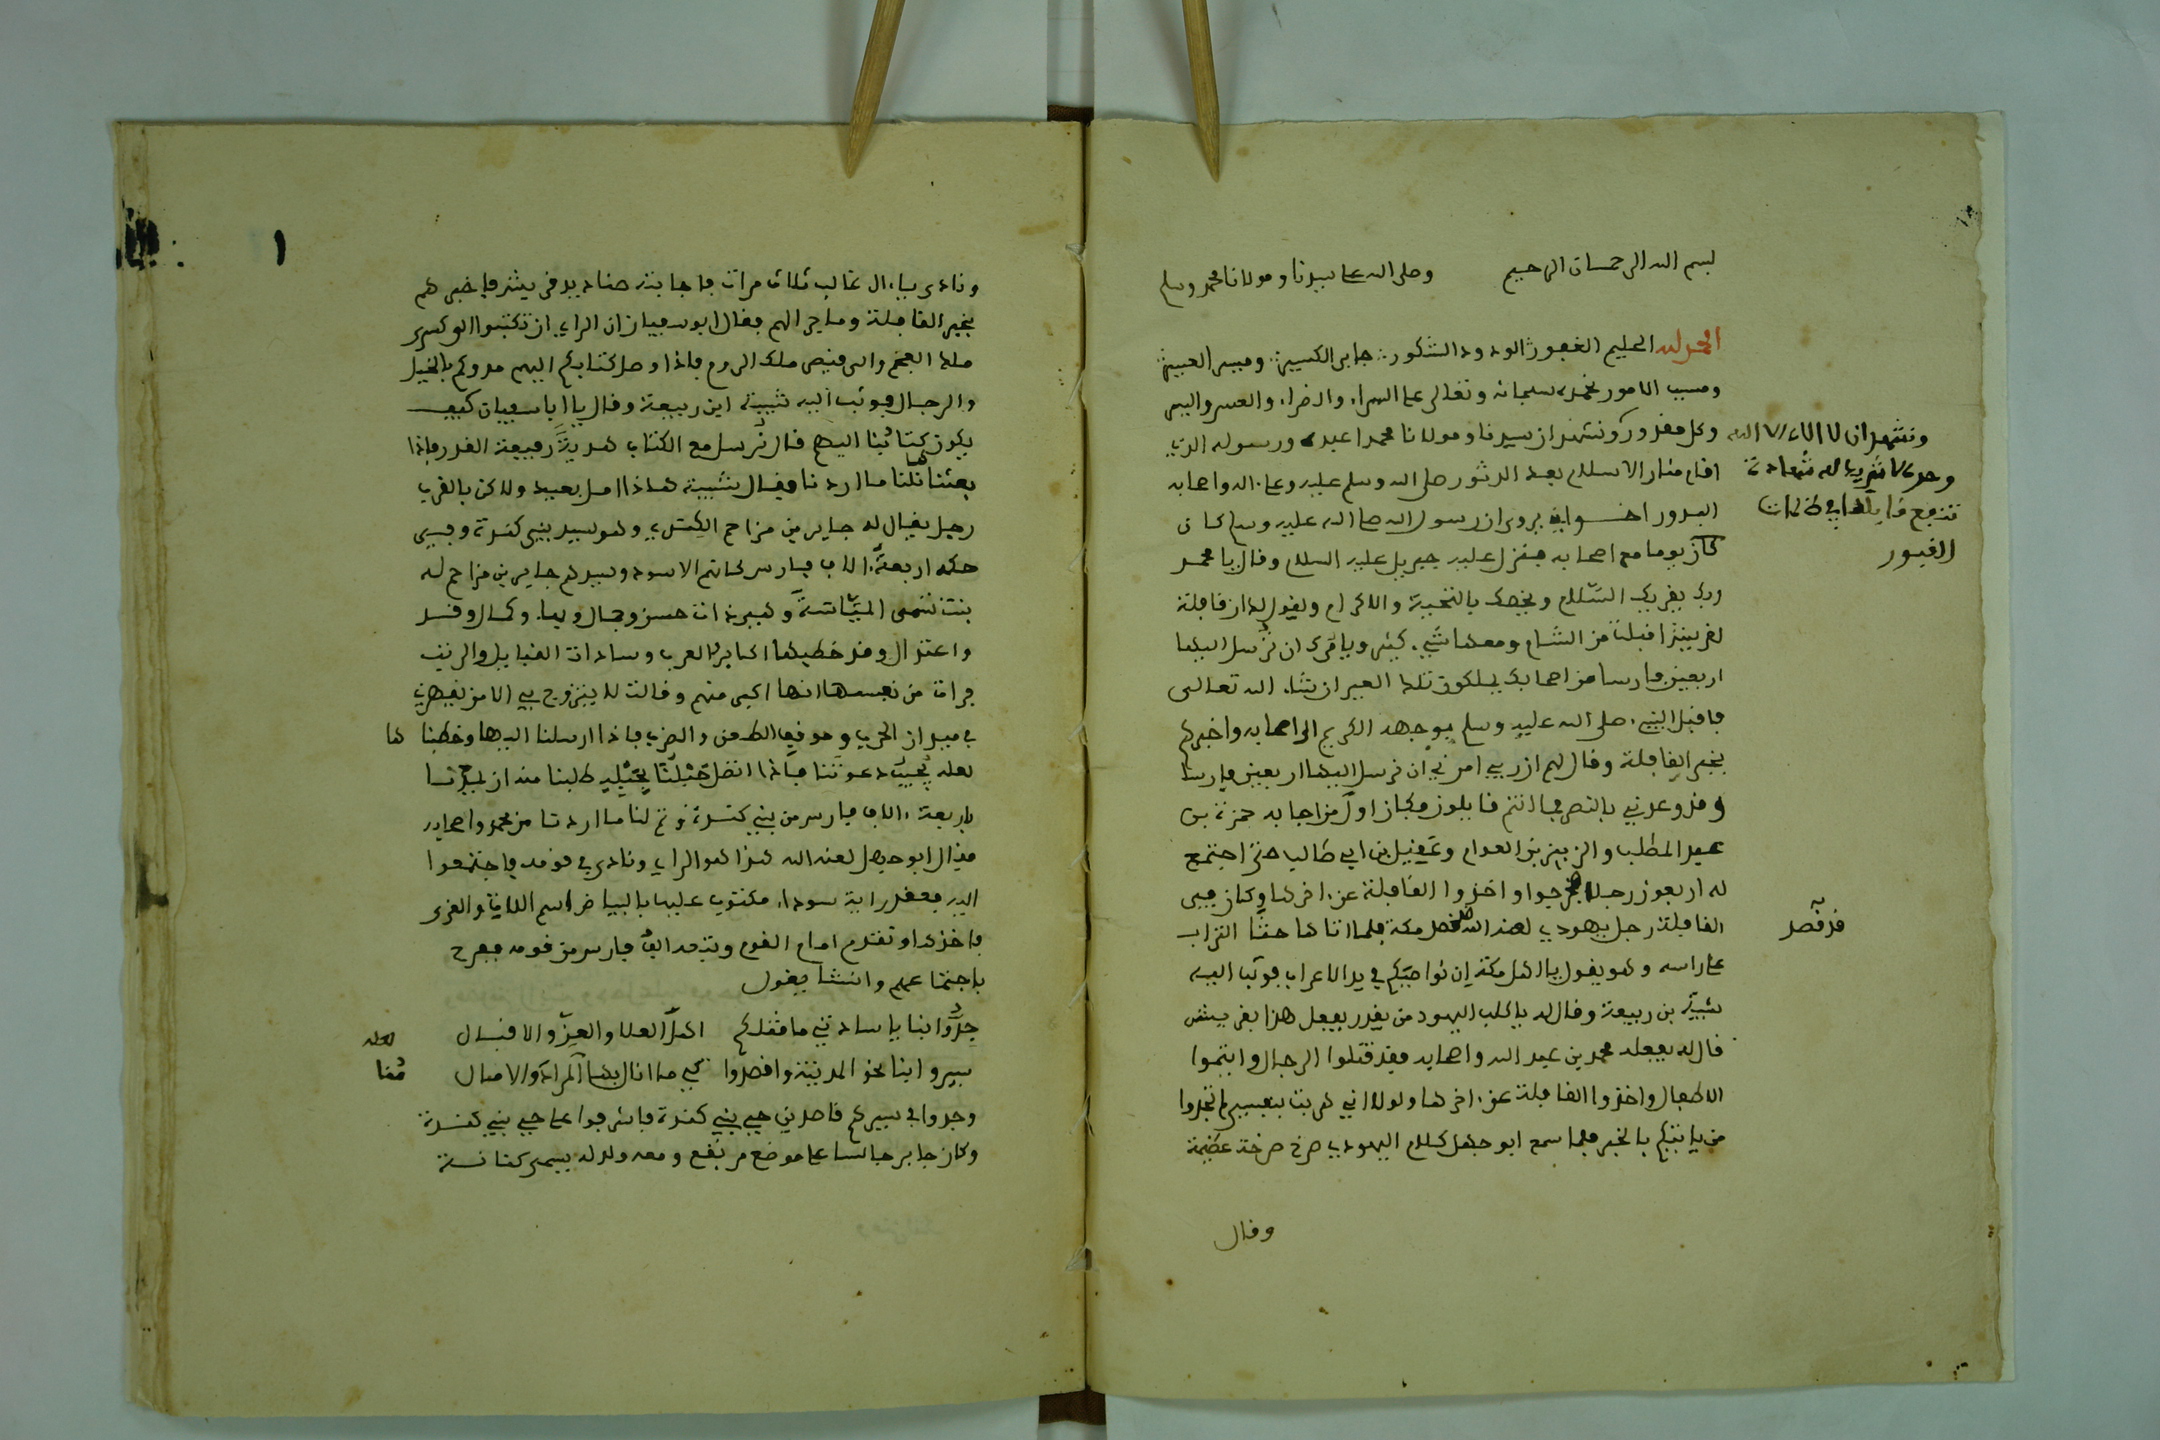 بسم الله الرحمان الرحيم وصلى الله على سيدنا ومولانا محمد وسلم
الحمد لله الحليم الغفور الودود الشكور جابر الكسير وميسر العسير
ومسبب الامور نحمده سبحانه وتعالى على السراء والضراء والعسر واليسر
وكل مقدور ونشهد ان سيدنا ومولانا محمدا عبده ورسوله الذي
اقام منار الاسلام بعد الدثور صلى الله وسلم عليه وعلى اله واصحابه
البدور يروى ان رسول الله صلى الله عليه وسلم كان
كان يوما مع اصحابه فنزل عليه جبريل عليه السلام وقال يا محمد
ربك يقريك السلام ويخصك بالتحية والاكرام ويقول لك ان قافلة
لقريش اقبلت من الشام ومعها شيء كثير ويامرك ان ترسل اليها
اربعين فارسا من اصحابك يملكون تلك العير ان شاء الله تعالى
فاقبل النبيء صلى الله عليه وسلم بوجهه الكريم الى اصحابه واخبرهم
بخبر القافلة وقال لهم ان ربي امرني ان نرسل اليها اربعين فارسا
وقد وعدني بالنصر فما انتم قايلون فكان اول من اجابه حمزة بن
عبد المطلب والزبير بن العوام وعقيل بن ابي طالب حتى اجتمع
له اربعون رجلا فخرجوا واخذوا القافلة عن اخرها وكان في
القافلة رجل يهودي لعنه الله مكة فلما اتاها حثا التراب
على راسه وهو يقول يا اهل مكة ان نواصيكم في يد الاعراب فوثب اليه
شيبة بن ربيعة وقال له يا كلب اليهود من يقدر يفعل هذا بقريش
قال له يفعله محمد بن عبد الله واصحابه فقد قتلوا الرجال وايتموا
الاطفال واخذوا القافلة عن اخرها ولولا اني هربت بنفسي لم تجدوا
من ياتيكم بالخبر فلما سمع ابو جهل كلام اليهودي صرخ صرخة عظيمة
وقال
ونشهد ان لا اله الا الله
وحده لا شريك له شهادة
تنفع قايلها في ظلمات
القبور
قد قصد
١
ونادى يا ال غالب ثلاث مرات فاجابته صناديد قريش فاخبرهم
بخبر القافلة وما جرى لهم فقال ابو سفيان ان الراي ان تكتبوا الى كسرى
ملك العجم والى قيصر ملك الروم فاذا وصل كتابكم اليهم مدوكم بالخيل
والرجال فوثب اليه شيبة ابن ربيعة وقال يا ابا سفيان كيف
يكون كتابنا اليهم قال نرسل مع الكتاب هدية رفيعة القدر فاذا
بعثنا نلنا ما اردنا فقال شيبة هذا امل بعيد ولاكن بالقرب
رجل يقال له جابر بن مزاحم الكندي وهو سيد بني كندة وفي
حكمه اربعة الاف فارس كانهم الاسود وسيدهم جابر بن مزاحم له
بنت تسمى المياسة وهي ذات حسن وجمال وبهاء وكمال وقد
واعتدال وقد خطبها اكابر العرب وسادات القبايل والريف
فرات من نفسها انها اكبر منهم وقالت لا يتزوج بي الا من يقهرني
في ميدان الحرب وموقف الطعن والضرب فاذا ارسلنا اليها وخطبنا
لعله يجيب دعوتنا فاذا اتصل حبلنا بحبله طلبنا منه ان يمدنا
باربعة الاف فارس من بني كندة وتم لنا ما اردنا من محمد واصحابه
فقال ابو جهل لعنه الله هذا هو الراي ونادى في قومه فاجتمعوا
اليه فعقد راية سوداء مكتوب عليها بالبياض اسم اللات والعزى
فاخذها وتقدم امام القوم وتبعه الف فارس من قومه ففرح
باجتماعهم وانشا يقول
جدوا بنا يا سادتي ما مثلكم اهل العلا والعز والاقبال
سيروا بنا نحو المدينة واقصدوا كي ما انال بها المراد والامال
وجدوا في سيرهم قاصدين حي بني كندة فاشرفوا على حي بني كندة
وكان جابر جالسا على موضع مرتفع ومعه ولد له يسمى كنانة
لها
لعله